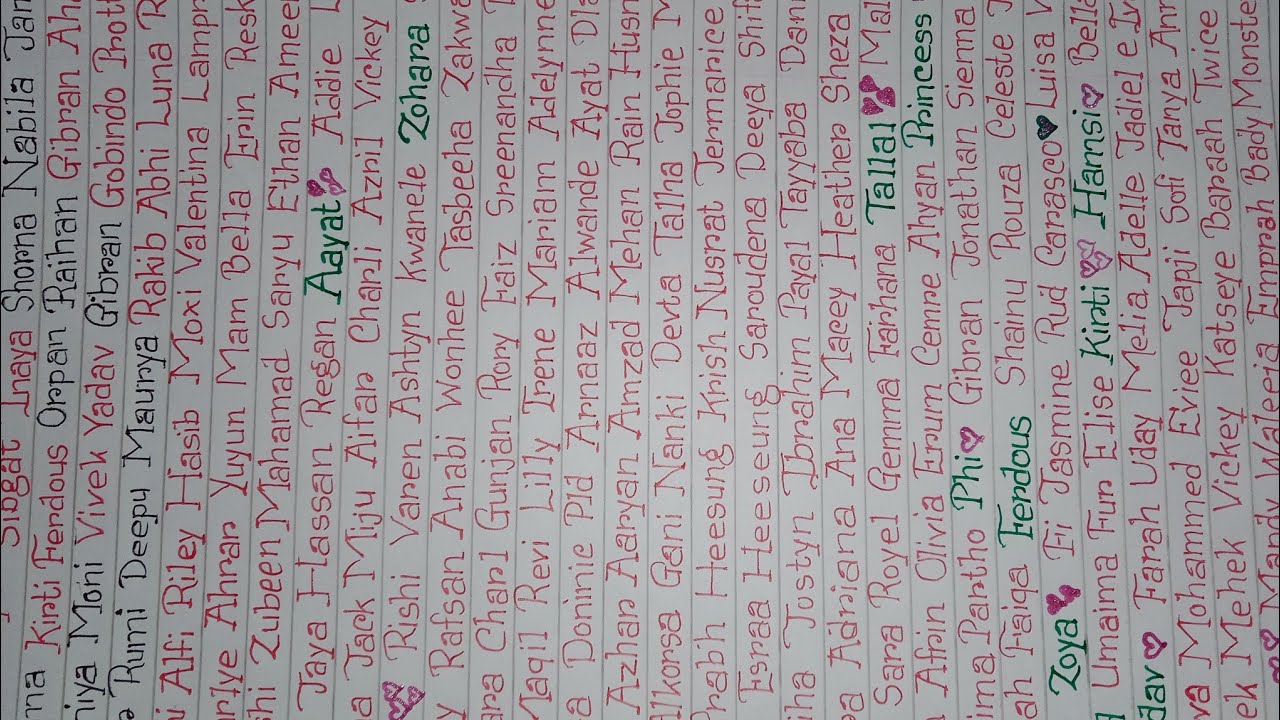 Sibgat Inaya Shorna Nabila Jan
ma Kirti Ferdous Orpan Raihan Gibran Aha
niya Moni Vivek Yadav Gibran Gobindo Prott
Rumi Deepu Maurya Rakib Abhi Luna R
i Alfi Riley Hasib Moxi Valentina Lampr
arlye Ahrar Yuyun Mam Bella Erin Resk
shi Zubeen Mahamad Saryu Ethan Amee
Jaya Hassan Regan Aayat Addie
a Jack Miju Aifar Charli Azril Vickey
Rishi Varen Ashtyn Kwanele Zohara
y Rafsan Anabi Wonhee Tasbeeha Zakwa
ara Charl Gunjan Rory Faiz Sreenandha
Maqil Revi Lilly Irene Mariam Adelynne
a Dominic Pld Arnaaz Alwande Ayat Dla
Azhar Aaryan Amzad Mehan Rain Husn
Alkorsa Gani Nanki Devta Talha Jophie M
Prabih Heesung Krish Nusrat Jermarice
Esraa Heeseung Saroudena Deeya Shif
iha Jostyn Ibrahim Payal Tayyaba Dan
a Adriana Ana Macey Heather Sheza
Sara Royel Gemma Farhana Tallal Mal
Afrin Olivia Erum Cemre Ahyan Princess
ima Partho Phi Gibran Jonathan Sienna
ah Faiqa Ferdous Shainu Rouza Celeste J
Zoya Fi Jasmine Rud Carrasco Luisa V
Umaima Fur Elise Kirti Hamsi Bella
dav Farah Uday Melia Adelle Jadiel e Ir
va Mohammed Eviee Japji Sofi Tanya Ann
ek Mehek Vickey Katseye Baraah Twice
Mandy Valeria Emprah Bady Monste